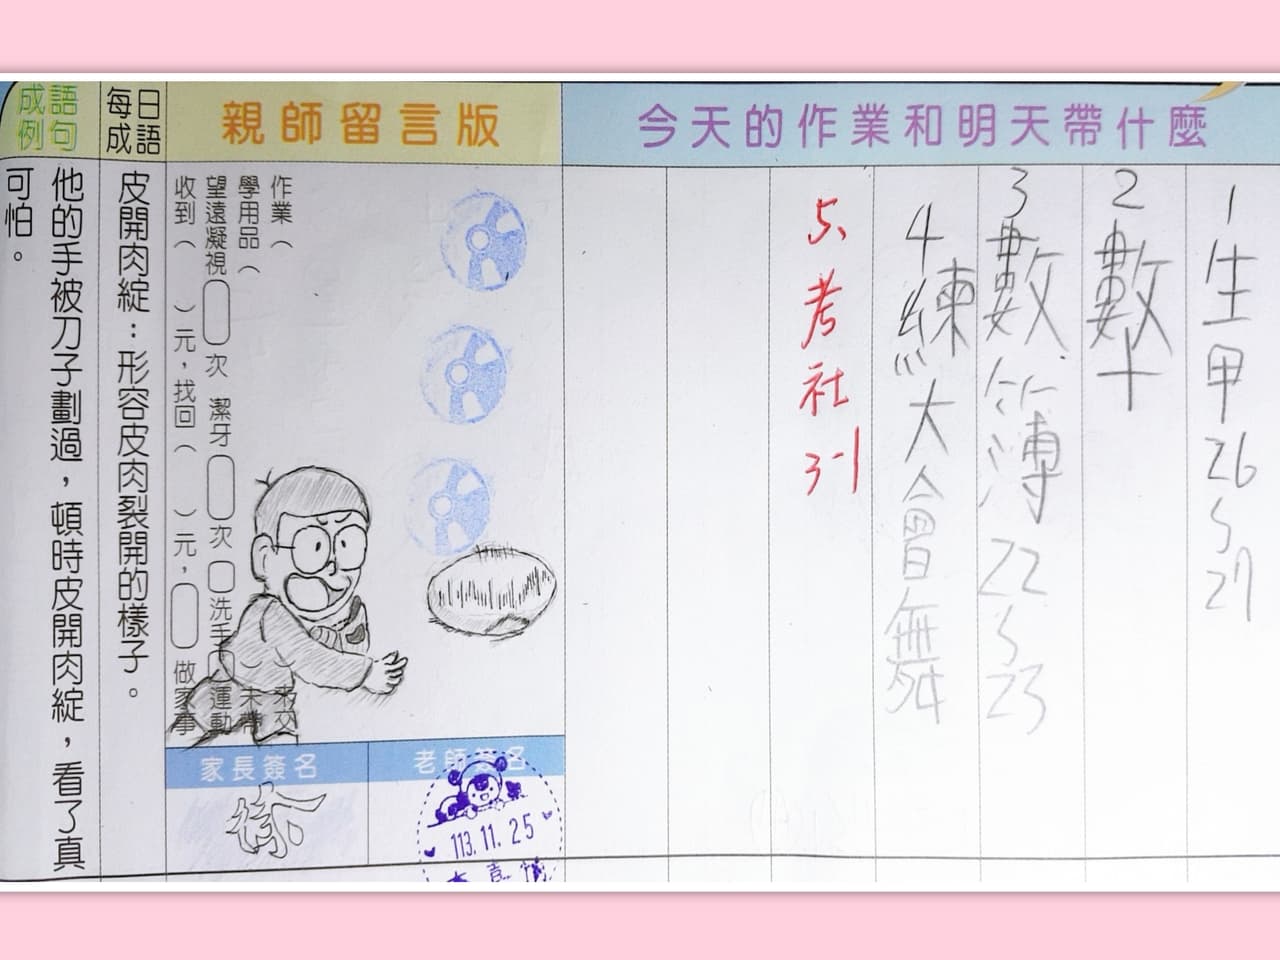 今天的作業和明天帶什麼
1生甲26
5
27
2數十
3數簿22
5
23
4練大會舞
5、考社3-1
親師留言版
作業（
學用品（
望遠凝視 次 潔牙 次 洗手 運動
收到（ ）元，找回（ ）元， 做家事
未交
未帶
家長簽名
老師簽名
徐
113.11.25
每日成語
皮開肉綻：形容皮肉裂開的樣子。
成語例句
他的手被刀子劃過，頓時皮開肉綻，看了真
可怕。